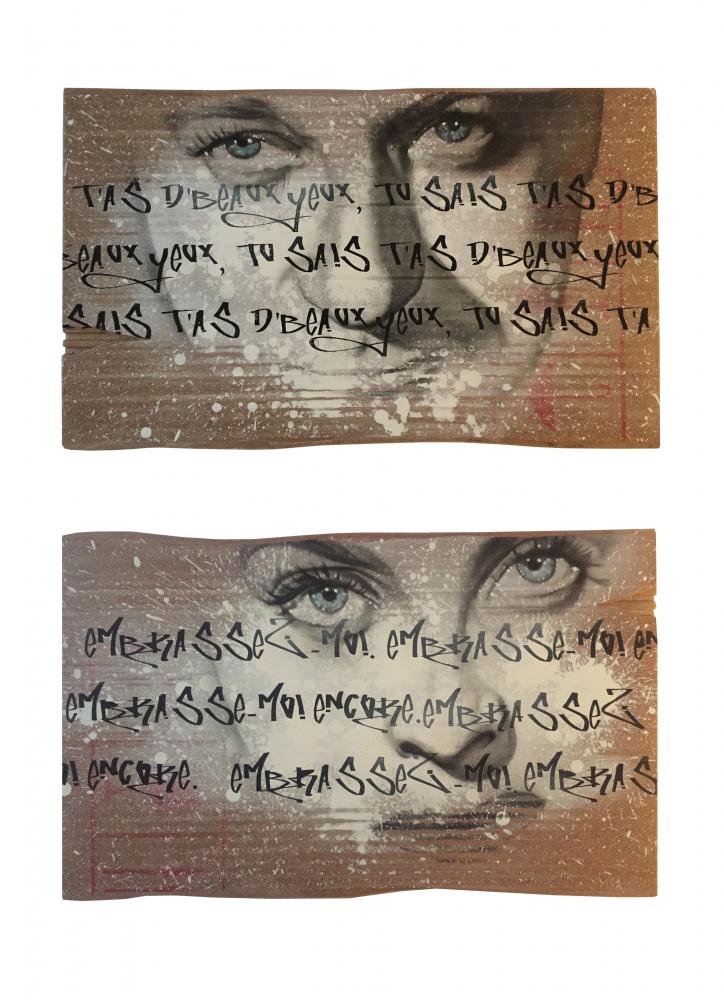 T'AS D'BEAUX YEUX, TU SAIS T'AS D'B
BEAUX YEUX, TU SAIS T'AS D'BEAUX YEUX
SAIS T'AS D'BEAUX YEUX, TU SAIS T'A
EMBRASSEZ-MOI. EMBRASSE-MOI EN
EMBRASSE-MOI ENCORE. EMBRASSEZ
OI ENCORE. EMBRASSEZ-MOI. EMBRAS